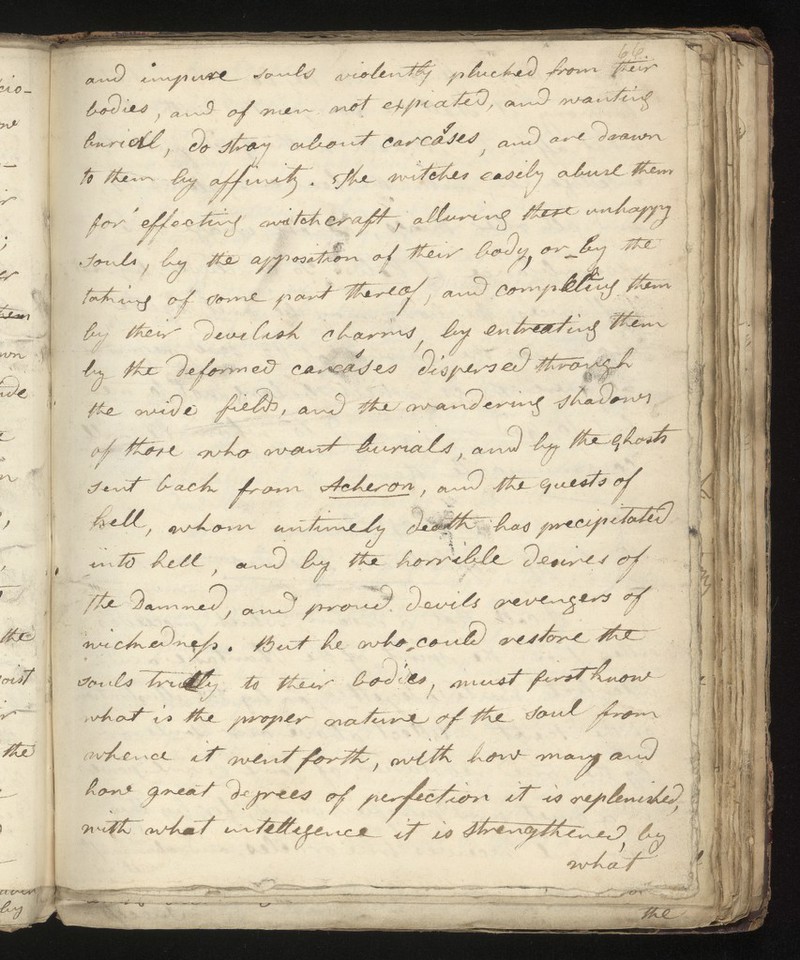 66
and impure souls violently plucked from their
bodies, and of men not expiated, and wanting
burial, do stray about carcases, and are drawn
to them by affinity. The witches easily abuse them
for effecting witchcraft, alluring these unhappy
souls, by the apposition of their body, or by the
taking of some part thereof, and compelling them
by their devilish charms, by entreating them
by the deformed carcases dispersed through
the wide fields, and the wandering shadows
of those who want burials, and by the ghosts
sent back from Acheron, and the guests of
hell, whom untimely death has precipitated
into hell, and by the horrible desires of
the Damned, and proud devils revengers of
wickedness. But he who could restore the
souls trully to their bodies, must first know
what is the proper nature of the soul from
whence it went forth, with how many and
how great degrees of perfection it is replenished,
with what intelligence it is strengthened, by
what
the